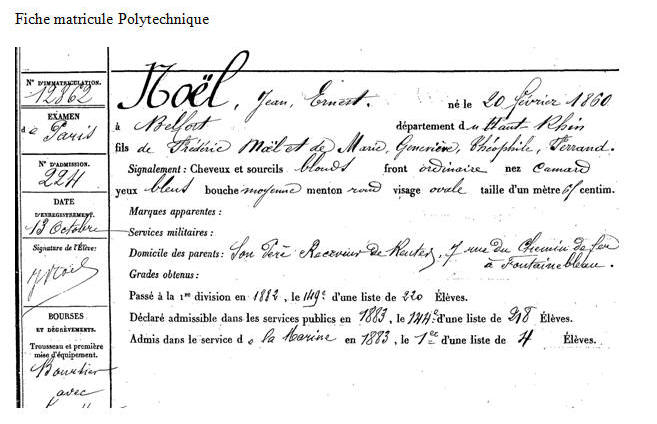 Fiche matricule Polytechnique
N° D'IMMATRICULATION.
12862
EXAMEN
de Paris
N° D'ADMISSION.
224
DATE
D'ENREGISTREMENT.
13 Octobre
Signature de l'Élève:
J Noël
BOURSES
ET DÉGRÈVEMENTS.
Trousseau et première
mise d'équipement.
Boursier
avec
Noël, Jean, Ernest. né le 20 février 1860
à Belfort département du Haut-Rhin
fils de Frédéric Noël et de Marie, Geneviève, Théophile, Ferrand.
Signalement : Cheveux et sourcils blonds front ordinaire nez camard
yeux bleus bouche moyenne menton rond visage ovale taille d'un mètre centim.
Marques apparentes :
Services militaires :
Domicile des parents : Son Père Receveur de Rentes, 7 rue du Chemin de fer
à Fontainebleau.
Grades obtenus :
Passé à la 1re division en 1882, le 149e d'une liste de 220 Élèves.
Déclaré admissible dans les services publics en 1883, le 144e d'une liste de 218 Élèves.
Admis dans le service de la Marine en 1883, le 1er d'une liste de 4 Élèves.